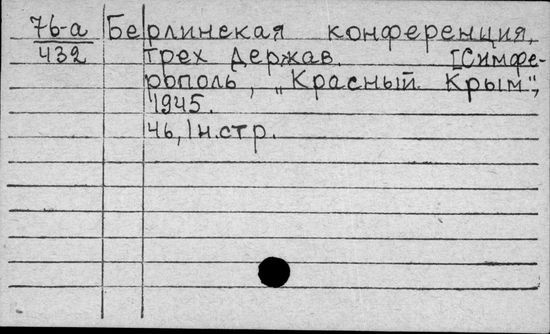 76-а Берлинская конференция
432 трех держав. [Симфе-
рополь, „Красный Крым",
1945.
46, 1 н.стр.